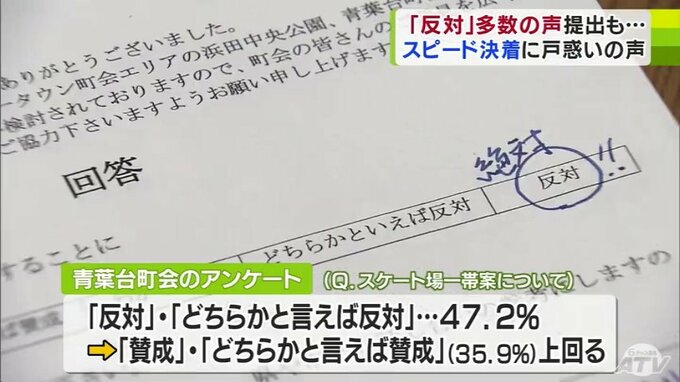 「反対」多数の声提出も…
スピード決着に戸惑いの声
ありがとうございました。
ータウン町会エリアの浜田中央公園、青葉台町
検討されておりますので、町会の皆さんの
ご協力下さいますようお願い申し上げます
回答
絶対
!!
どちらかといえば反対
反対
することに
青葉台町会のアンケート
(Q.スケート場一帯案について)
「反対」・「どちらかと言えば反対」…47.2%
➡「賛成」・「どちらかと言えば賛成」(35.9%)上回る
ATV